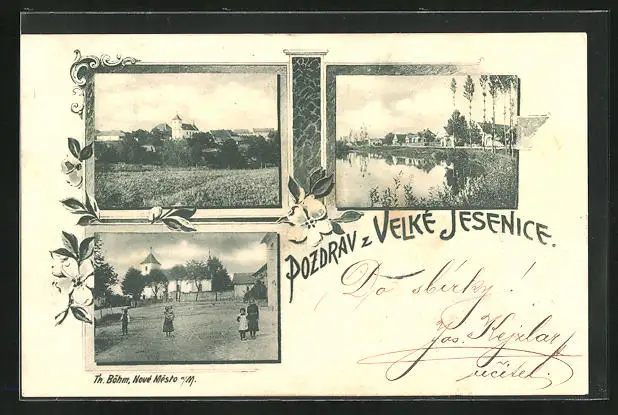 POZDRAV z VELKÉ JESENICE.
Do sbírky!
Jos. Kejzlar
učitel.
Th. Böhm, Nové Město n/M.